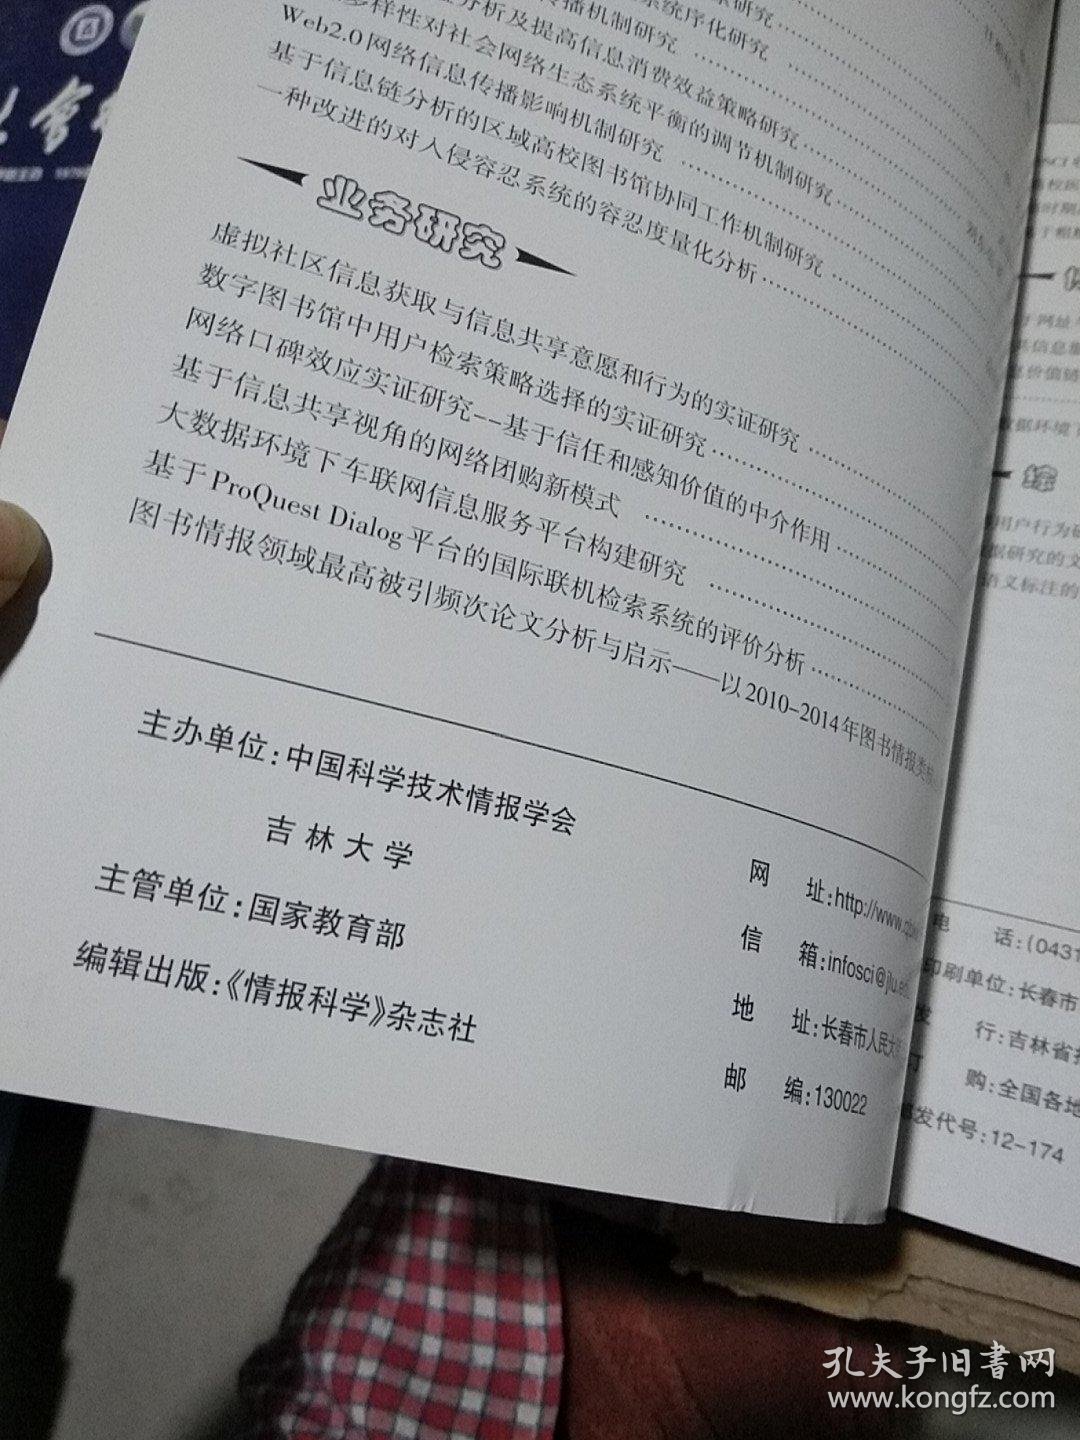 系统序化研究
传播机制研究
分析及提高信息消费效益策略研究
多样性对社会网络生态系统平衡的调节机制研究
Web2.0网络信息传播影响机制研究
基于信息链分析的区域高校图书馆协同工作机制研究
一种改进的对入侵容忍系统的容忍度量化分析
业务研究
虚拟社区信息获取与信息共享意愿和行为的实证研究
数字图书馆中用户检索策略选择的实证研究
网络口碑效应实证研究--基于信任和感知价值的中介作用
基于信息共享视角的网络团购新模式
大数据环境下车联网信息服务平台构建研究
基于ProQuest Dialog平台的国际联机检索系统的评价分析
图书情报领域最高被引频次论文分析与启示——以2010-2014年图书情报类
主办单位:中国科学技术情报学会
吉林大学
主管单位:国家教育部
编辑出版:《情报科学》杂志社
网 址:http://www.
信 箱:infosci@jlu.ed
地 址:长春市人民大
邮 编:130022
综
用户行为研
据研究的文
语义标注的
电 话:(0431
印刷单位:长春市
发 行:吉林省
订 购:全国各地
邮发代号:12-174
孔夫子旧書网
www.kongfz.com